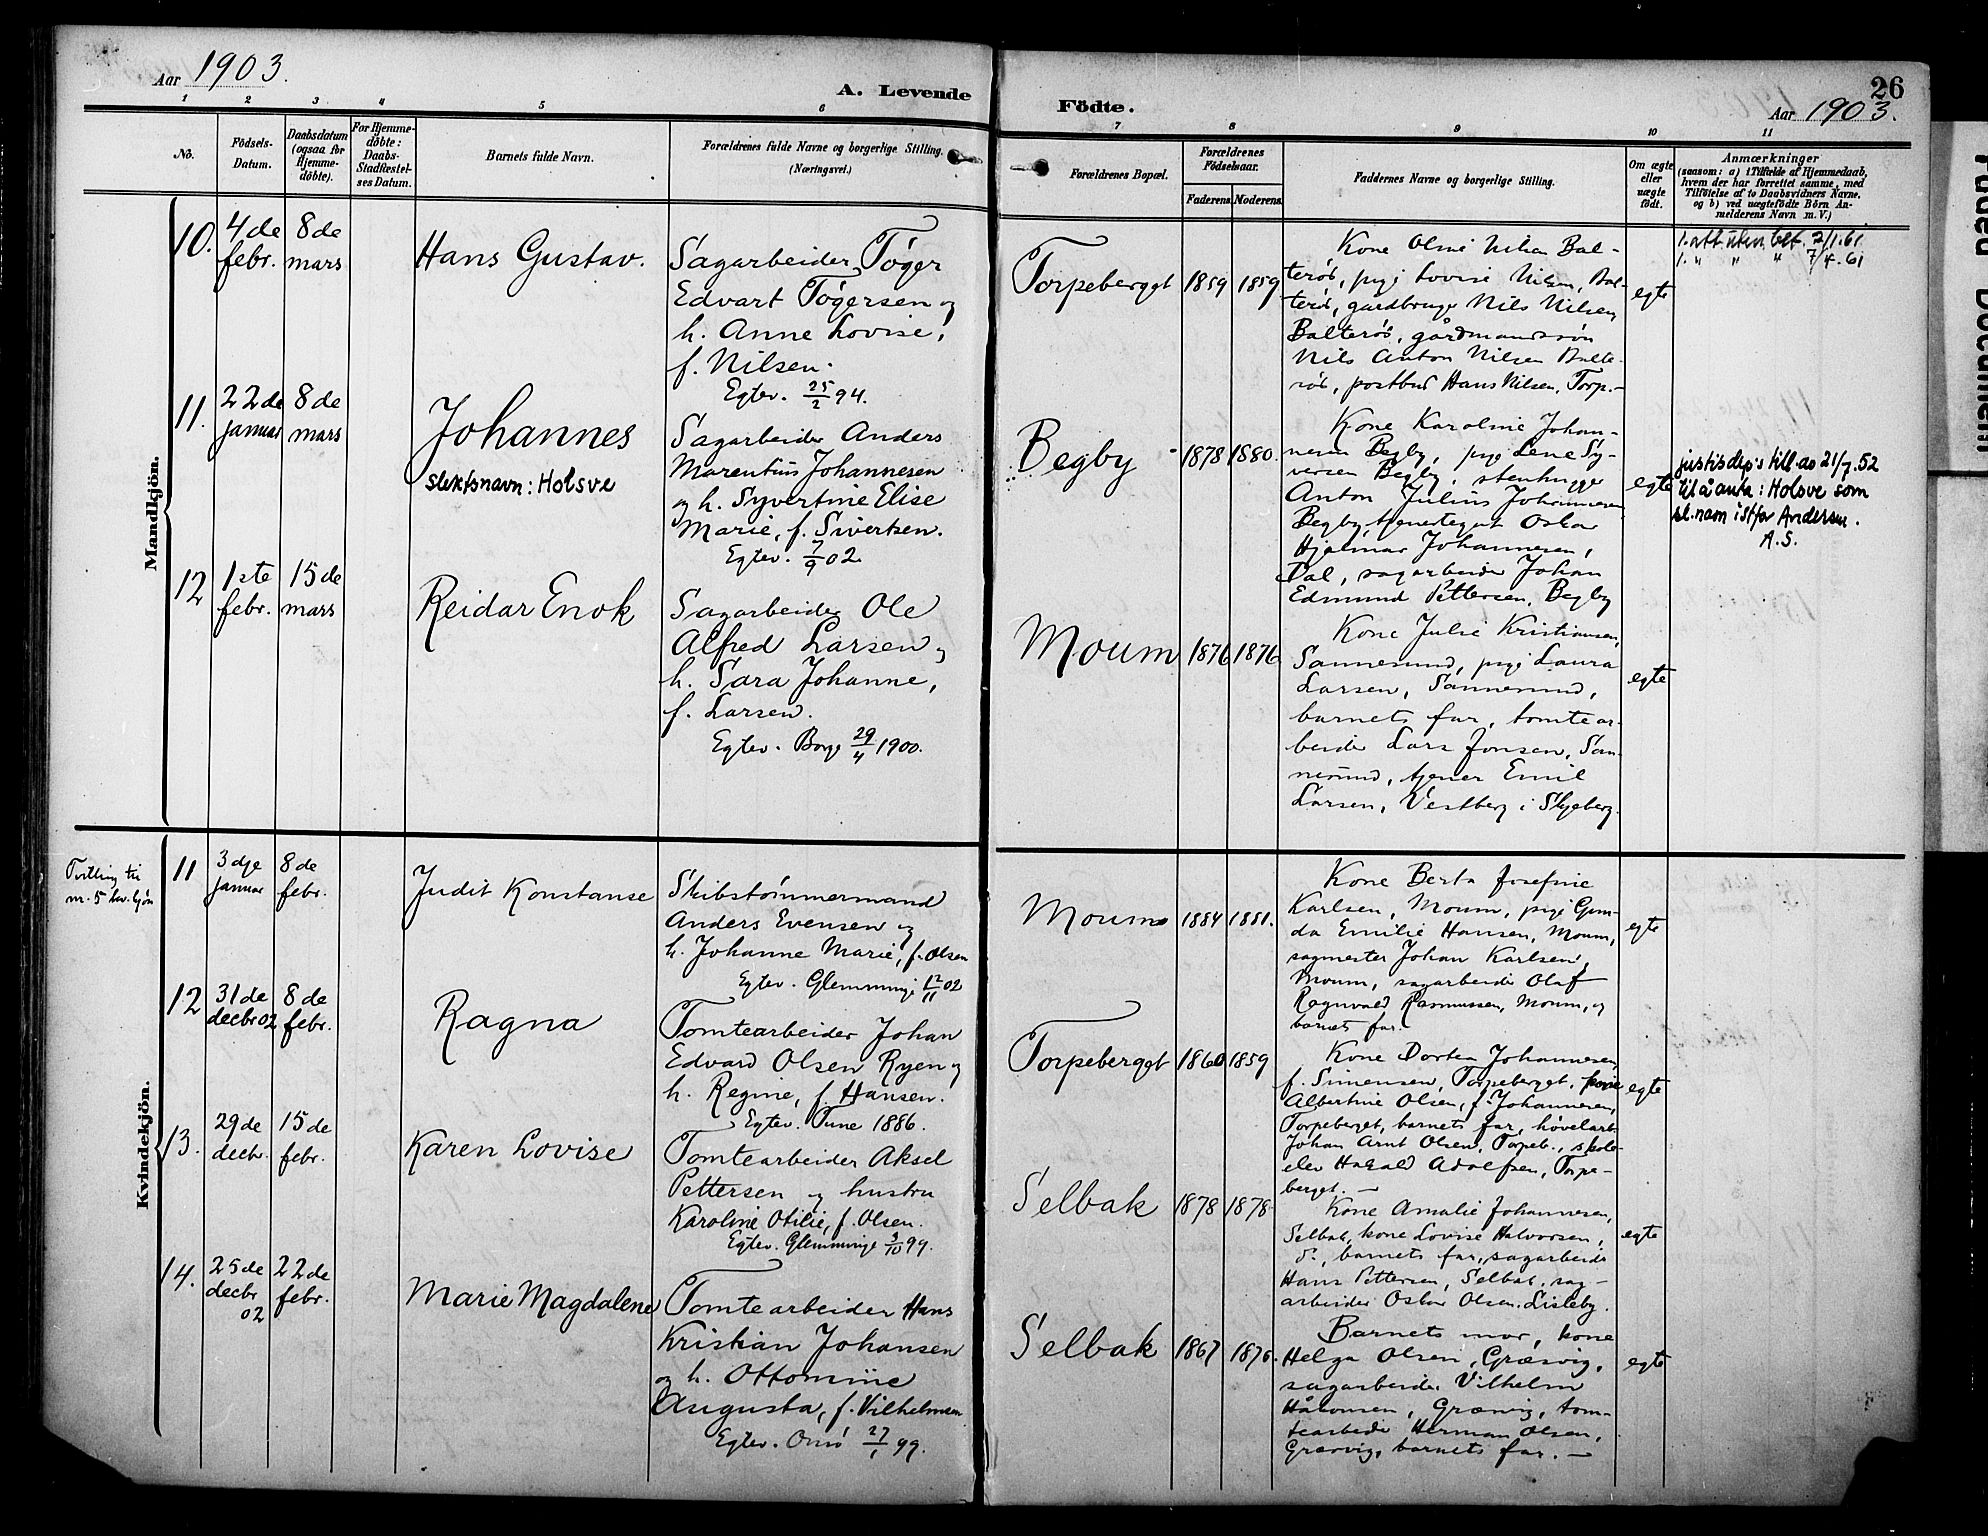 Aar 1903.
A. Levende
1 2 3 4 5 6
No.
Födsels-
Datum.
Daabsdatum
(ogsaa for
Hjemme-
döbte).
For Hjemme-
döbte:
Daabs-
Stadfæstel-
ses Datum.
Barnets fulde Navn.
Forældrenes fulde Navne og borgerlige Stilling.
(Næringsvei.)
Mandkjön.
10.
4de
febr.
8de
mars
Hans Gustav.
Sagarbeider Tøger
Edvart Tøgersen og
h. Anne Lovise,
f. Nilsen.
Egtev. 25/2 94.
11.
22de
januar
8de
mars
Johannes
slektsnavn: Holsve
Sagarbeider Anders
Marentius Johannesen
og h. Syvertine Elise
Marie, f. Sivertsen.
Egtev. 7/9 02.
12
1ste
febr.
15de
mars
Reidar Enok
Sagarbeider Ole
Alfred Larsen og
h. Sara Johanne,
f. Larsen.
Egtev. Borge 29/4 1900.
Kvindekjön.
Tvilling til
nr. 5 kjøn
11
3dje
januar
8de
febr.
Judit Konstanse
Skibstømmermand
Anders Evensen og
h. Johanne Marie, f. Olsen
Egtev. Glemminge 12/11 02
12
31de
decbr 02
8de
febr.
Ragna
Tomtearbeider Johan
Edvard Olsen Ryen og
h. Regine, f. Hansen.
Egtev. Tune 1886.
13.
29de
decbr.
15de
febr.
Karen Lovise
Tomtearbeider Aksel
Pettersen og hustru
Karoline Otilie, f. Olsen.
Egtev. Glemminge 3/10 99.
14.
25de
decbr
02
22de
febr.
Marie Magdalene
Tomtearbeider Hans
Kristian Johansen
og h. Ottomine
Augusta, f. Vilhelmsen
Egtev. Onsø 27/1 99.
26
Födte.
Aar 1903.
7 8 9 10 11
Forældrenes Bopæl.
Forældrenes
Födselsaar.
Faderens Moderens.
Faddernes Navne og borgerlige Stilling.
Om ægte
eller
uægte
födt.
Anmærkninger
(saasom: a) i Tilfælde af Hjemmedaab,
hvem der har forrettet samme, med
Tilföielse af to Daabsvidners Navne,
og b) ved uægtefödte Börn An-
melderens Navn m. V.)
Torpeberget 1859 1859
Kone Oline Nilsen Bal-
terød, pige Lovise Nilsen, Bal-
terød, gardbruger Nils Nilsen
Balterød, gårdmandssøn
Nils Anton Nilsen Balte-
rød, postbud Hans Nilsen, Torp.-
egte
1. att. uten bet. 2/1.61
1. " " " 7/4.61
Begby 1878 1880.
Kone Karoline Johan-
nesen Begby, pige Lene Sy-
versen Begby, stenhugger
Anton Julius Johannesen
Begby, tjenestegut Oskar
Hjalmar Johannesen,
Dal, sagarbeider Johan
Edmund Pettersen, Begby
egte
justisdep's till. av 21/7.52
til å anta: Holsve som
sl.navn istfor Andersen.
A.S.
Moum 1876 1876
Kone Julie Kristiansen,
Sannesund, pige Laura
Larsen, Sannesund,
barnets far, tomtear-
beider Lars Jonsen, San-
nesund, tjener Emil
Larsen, Vestberg i Skjeberg.
egte
Moum 1884 1881.
Kone Berta Josefine
Karlsen, Moum, pige Gun-
da Emilie Hansen, Moum,
sagmester Johan Karlsen,
Moum, sagarbeider Olaf
Ragnvald Rasmussen, Moum, og
barnets far.
egte
Torpeberget 1860 1859
Kone Dortea Johannesen,
f. Simensen, Torpeberget, kone
Albertine Olsen, f. Johannesen,
Torpeberget, barnets far, høvelarb.
Johan Arnt Olsen, Torpeb., skole-
elev Harald Adolfsen, Torpe-
berget. —
egte
Selbak 1878 1878
Kone Amalie Johannesen,
Selbak, kone Lovise Halvorsen,
s., barnets far, sagarbeider
Hans Pettersen, Selbak, sag-
arbeider Oskar Olsen. Lisleby.
egte
Selbak 1867 1876.
Barnets mor, kone
Helga Olsen, Græsvig,
sagarbeider Vilhelm
Håkonsen, Græsvig, tom-
tearbeider Herman Olsen,
Græsvig, barnets far. —
egte